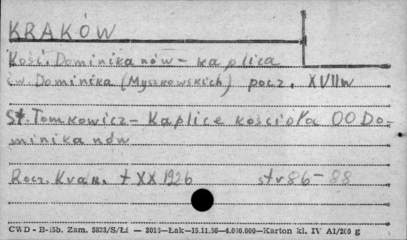 KRAKÓW
Kość. Dominikanów - kaplica
św. Dominika (Myszkowskich) pocz. XVIIw
St. Tomkowicz - Kaplice kościoła OO Do-
minikanów
Rocz. Krak. t XX 1926 str 86-88
CWD - B-15b. Zam. 5823/S/Łi — 3016—Łak—15.11.56—4.000.000—Karton kl. IV A1/200 g